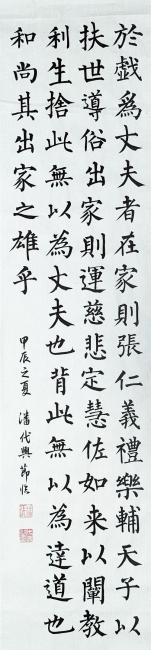 於戲爲丈夫者在家則張仁義禮樂輔天子以
扶世導俗出家則運慈悲定慧佐如来以闡教
利生捨此無以為丈夫也背此無以為達道也
和尚其出家之雄乎
甲辰之夏 潘代興節臨